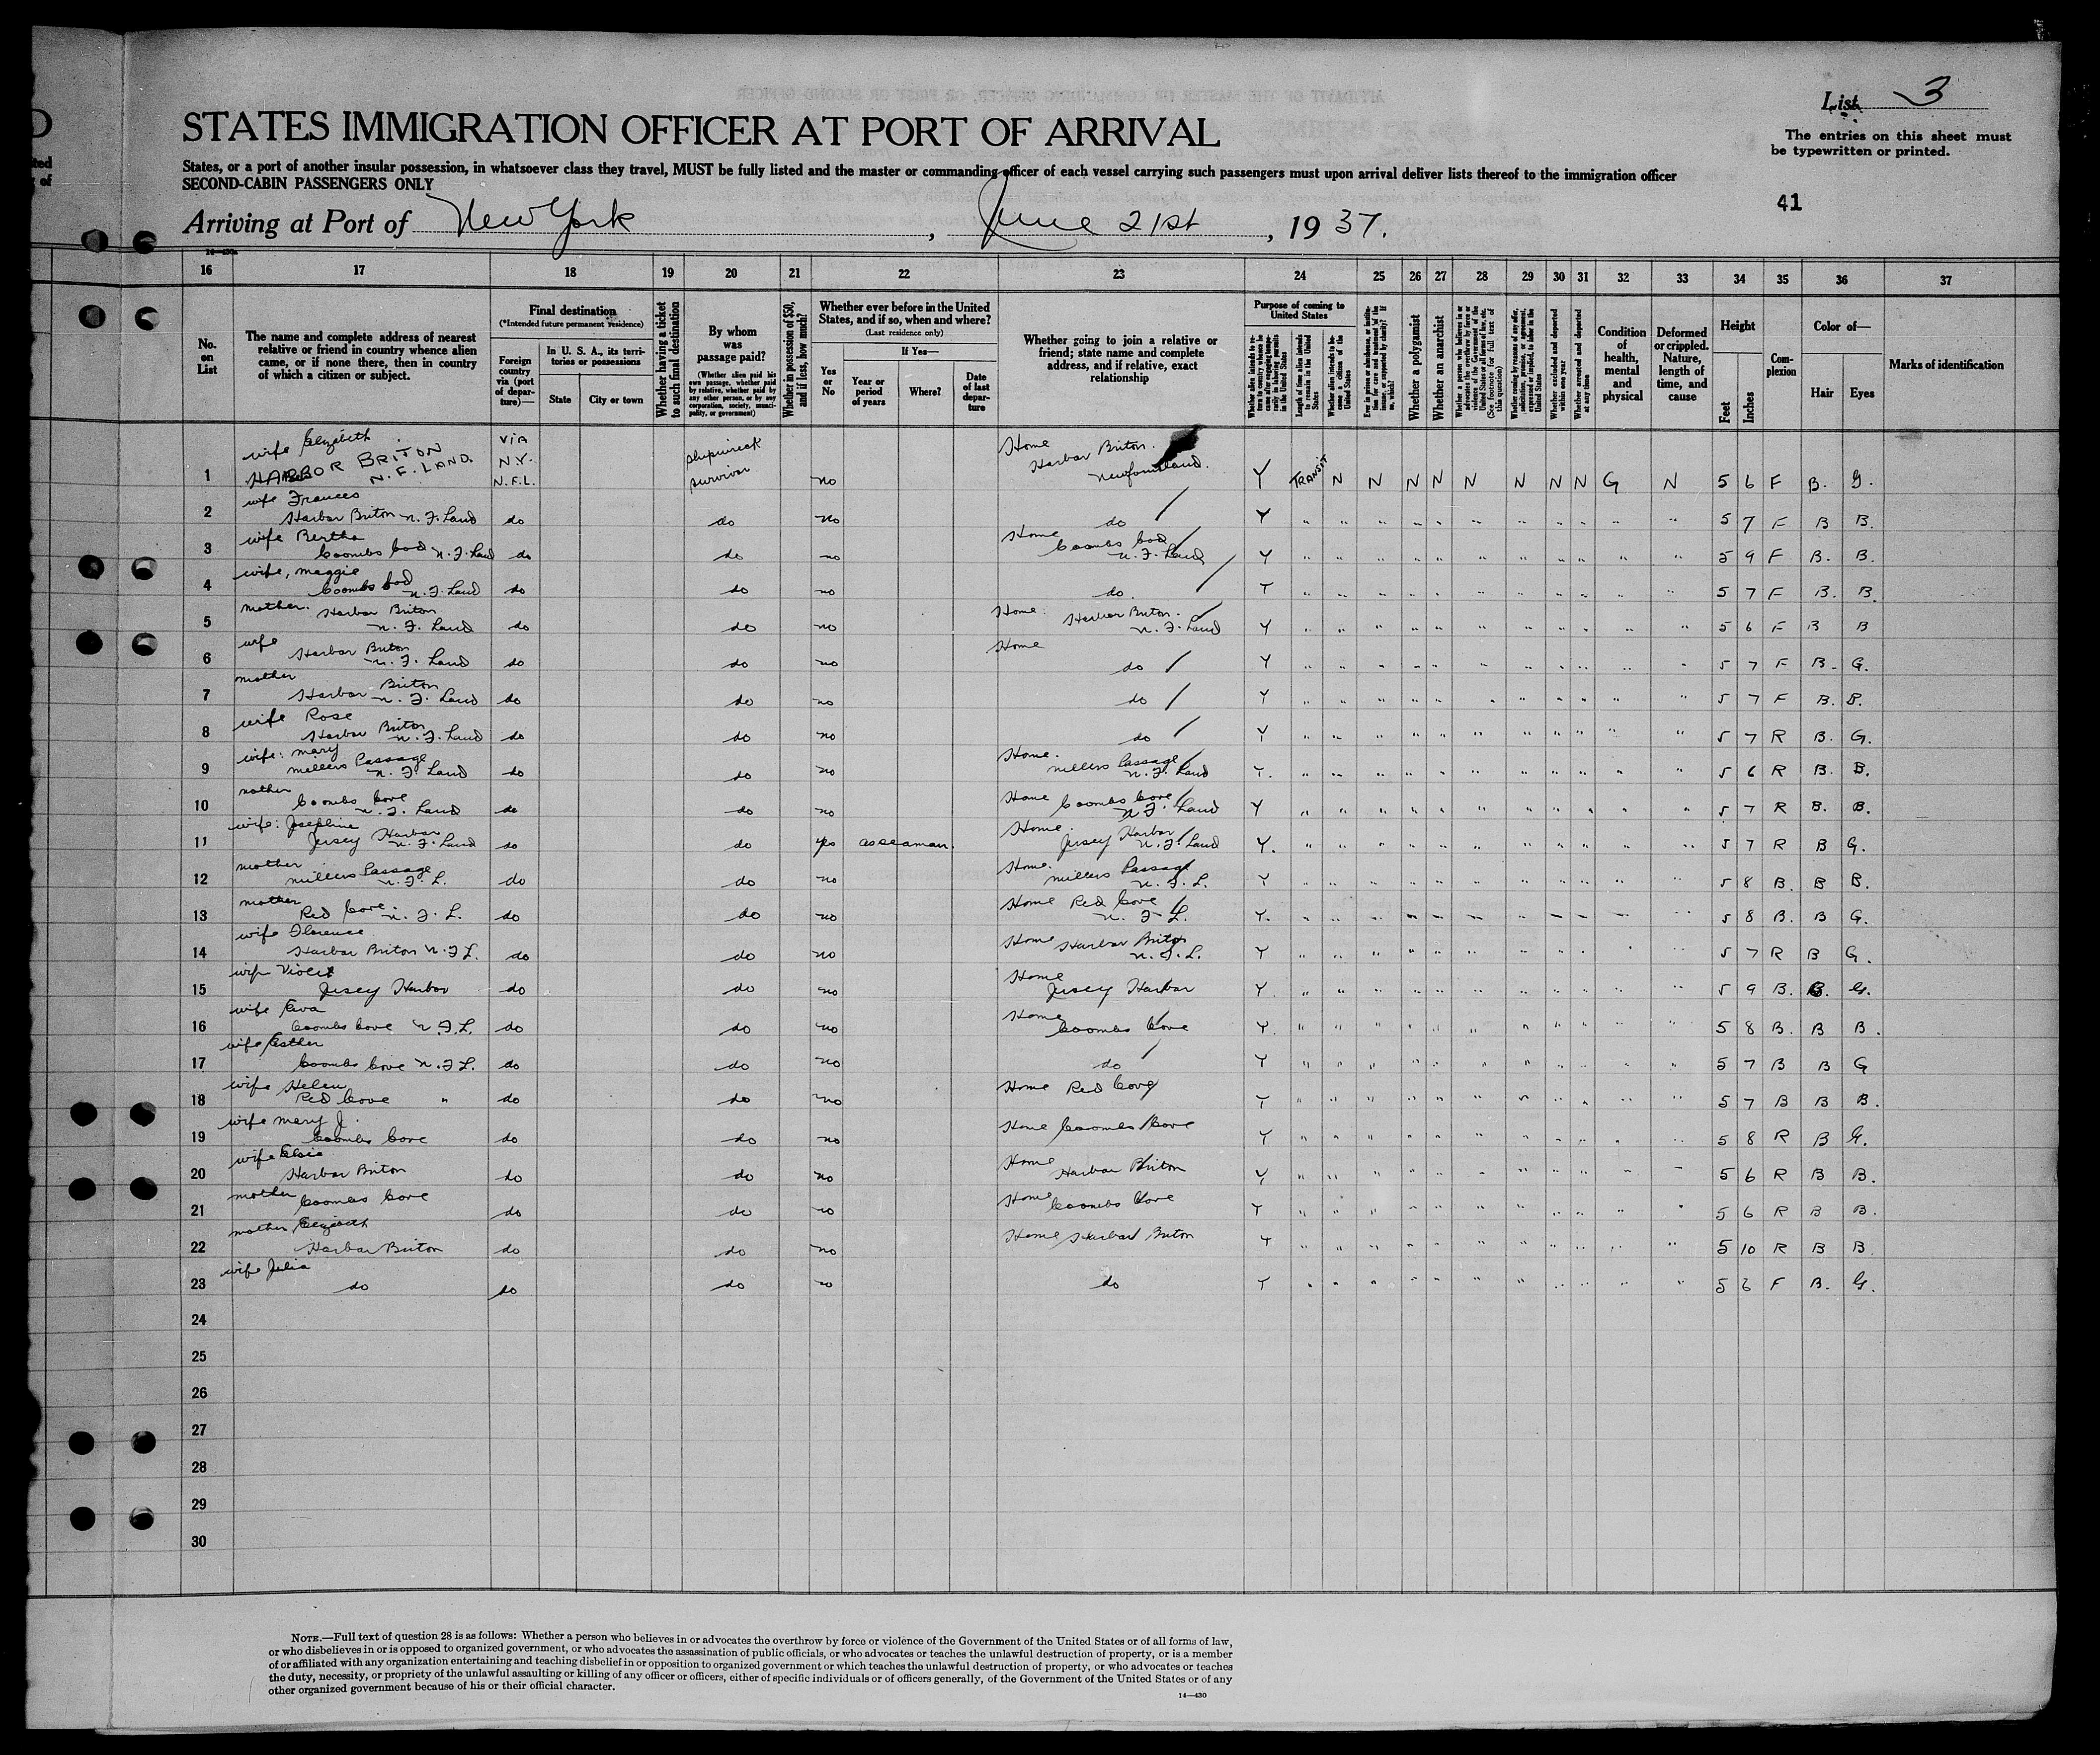 List 3
The entries on this sheet must
be typewritten or printed.
STATES IMMIGRATION OFFICER AT PORT OF ARRIVAL
States, or a port of another insular possession, in whatsoever class they travel, MUST be fully listed and the master or commanding officer of each vessel carrying such passengers must upon arrival deliver lists thereof to the immigration officer
SECOND-CABIN PASSENGERS ONLY
41
Arriving at Port of New York, June 21st, 1937.
16 17 18 19 20 21 22 23 24 25 26 27 28 29 30 31 32 33 34 35 36 37
No. on List
The name and complete address of nearest relative or friend in country whence alien came, or if none there, then in country of which a citizen or subject.
Final destination
(*Intended future permanent residence)
Foreign country via (port of departure)—
In U. S. A., its territories or possessions
State
City or town
Whether having a ticket to such final destination
By whom was passage paid?
(Whether alien paid his own passage, whether paid by relative, whether paid by any other person, or by any corporation, society, municipality, or government)
Whether in possession of $50, and if less, how much?
Whether ever before in the United States, and if so, when and where?
(Last residence only)
Yes or No
If Yes—
Year or period of years
Where?
Date of last departure
Whether going to join a relative or friend; state name and complete address, and if relative, exact relationship
Purpose of coming to United States
Length of time alien intends to remain in the United States
Whether alien intends to become a citizen of the United States
Whether a polygamist
Whether an anarchist
Whether excluded and deported within one year
Whether arrested and deported at any time
Condition of health, mental and physical
Deformed or crippled. Nature, length of time, and cause
Height
Feet
Inches
Complexion
Color of—
Hair
Eyes
Marks of identification
1 wife Elizabeth HARBOR BRITON N.F. LAND. VIA N.Y. N.F.L. shipwreck survivor no Home Harbor Briton. Newfoundland. Y TRANSIT N N N N N N N N G N 5 6 F B. G.
2 wife Frances Harbor Briton N.F. Land do do no do Y 5 7 F B B.
3 wife Bertha Coombs N.F. Land do do no Home Coombs N.F. Land Y 5 9 F B. B.
4 wife, Maggie Coombs N.F. Land do do no do. Y 5 7 F B. B.
5 mother. Harbor Briton N.F. Land do do no Home: Harbor Briton. N.F. Land Y 5 6 F B B
6 wife Harbor Briton N.F. Land do do no Home do Y 5 7 F B. G.
7 mother Harbor Briton N.F. Land do do no do Y 5 7 F B. B.
8 wife Rose Harbor Briton N.F. Land do do no do Y 5 7 R B. G.
9 wife: Mary Millers Passage N.F. Land do do no Home. Millers Passage N.F. Land Y. 5 6 R B. B.
10 mother Coombs Cove N.F. Land do do no Home Coombs Cove N.F. Land Y 5 7 R B. B.
11 wife: Josephine Jersey Harbor N.F. Land do do yes as seaman. Home. Jersey Harbor N.F. Land Y. 5 7 R B G.
12 mother Millers Passage N.F.L. do do no Home. Millers Passage N.F.L. Y 5 8 B. B B.
13 mother Red Cove. N.F.L. do do no Home Red Cove N.F.L. Y. 5 8 B. B G.
14 wife Florence Harbor Briton N.F.L. do do no Home Harbor Briton N.F.L. Y 5 7 R B G.
15 wife Violet Jersey Harbor do do no Home Jersey Harbor Y. 5 9 B. B. G.
16 wife Eva Coombs Cove N.F.L. do do no Home Coombs Cove Y. 5 8 B. B B.
17 wife Esther Coombs Cove N.F.L. do do no do Y 5 7 B B G
18 wife Helen Red Cove " do do no Home Red Cove Y 5 7 B B B.
19 wife Mary J. Coombs Cove do do no Home Coombs Cove Y 5 8 R B G.
20 wife Elsie Harbor Briton do do no Home Harbor Briton Y 5 6 R B B.
21 mother Coombs Cove do do no Home Coombs Cove Y 5 6 R B B.
22 mother Elizabeth Harbor Briton do do no Home Harbor Briton Y 5 10 R B B.
23 wife Julia do do do no do Y 5 6 F B. G.
24
25
26
27
28
29
30
NOTE.—Full text of question 28 is as follows: Whether a person who believes in or advocates the overthrow by force or violence of the Government of the United States or of all forms of law,
or who disbelieves in or is opposed to organized government, or who advocates the assassination of public officials, or who advocates or teaches the unlawful destruction of property, or is a member
of or affiliated with any organization entertaining and teaching disbelief in or opposition to organized government or which teaches the unlawful destruction of property, or who advocates or teaches
the duty, necessity, or propriety of the unlawful assaulting or killing of any officer or officers, either of specific individuals or of officers generally, of the Government of the United States or of any
other organized government because of his or their official character.
14—430